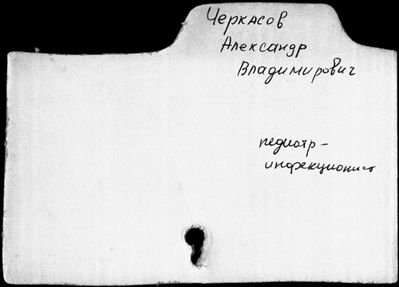 Черкасов
Александр
Владимирович
педиатр -
инфекционист